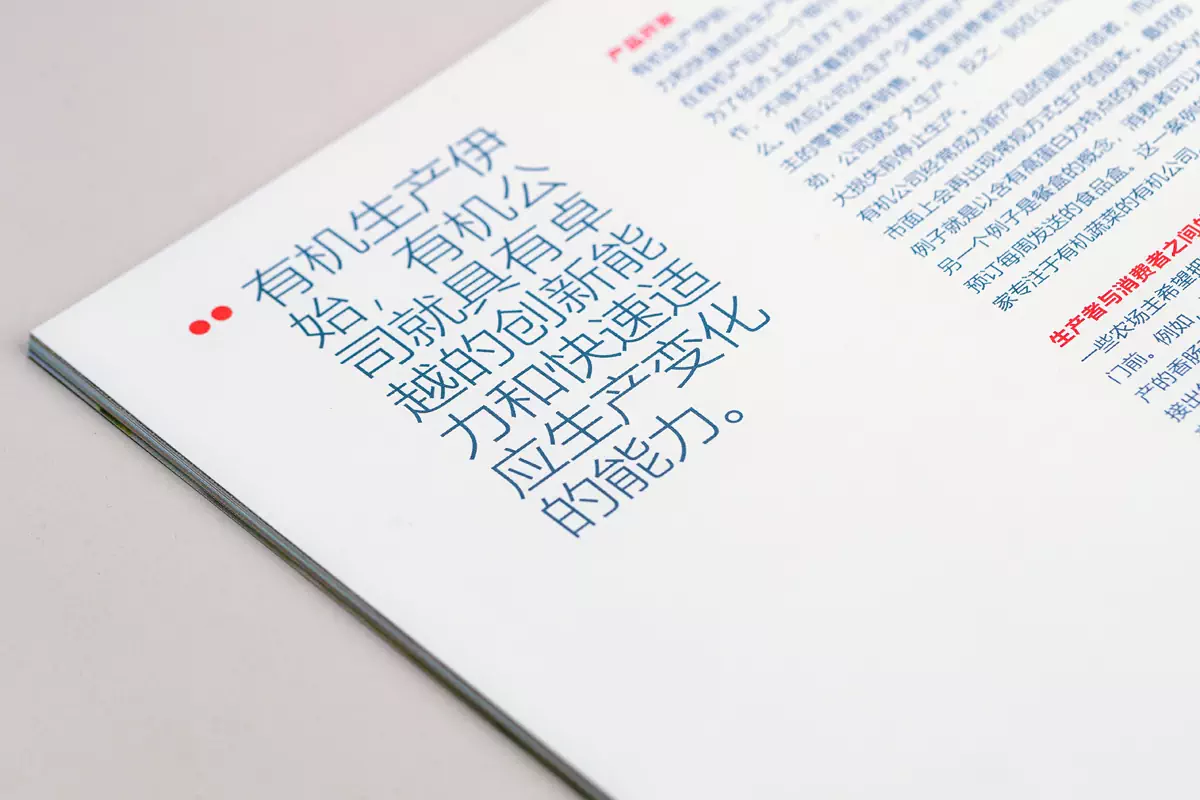 有机生产伊
始，有机公
司就具有卓
越的创新能
力和快速适
应生产变化
的能力。
产品开发
有机生产学院，
力和快速适应生产
在有机产品对一个
为了经济上能生存下去，
作，不得不试着
么。然后公司先生产少量的新产
主的零售商来销售，如果消费者的
劲，公司就扩大生产，反之，则在公司
大损失前停止生产。
有机公司经常成为新产品的潮流引领者，而
市面上会再出现常规方式生产的版本。最好的
例子就是以含有高蛋白为特点的乳制品Sky
另一个例子是餐盒的概念，消费者可以
预订每周发送的食品盒。这一案例
家专注于有机蔬菜的有机公司，
生产者与消费者之间的
一些农场主希望把
门前。例如，
产的香肠
接出